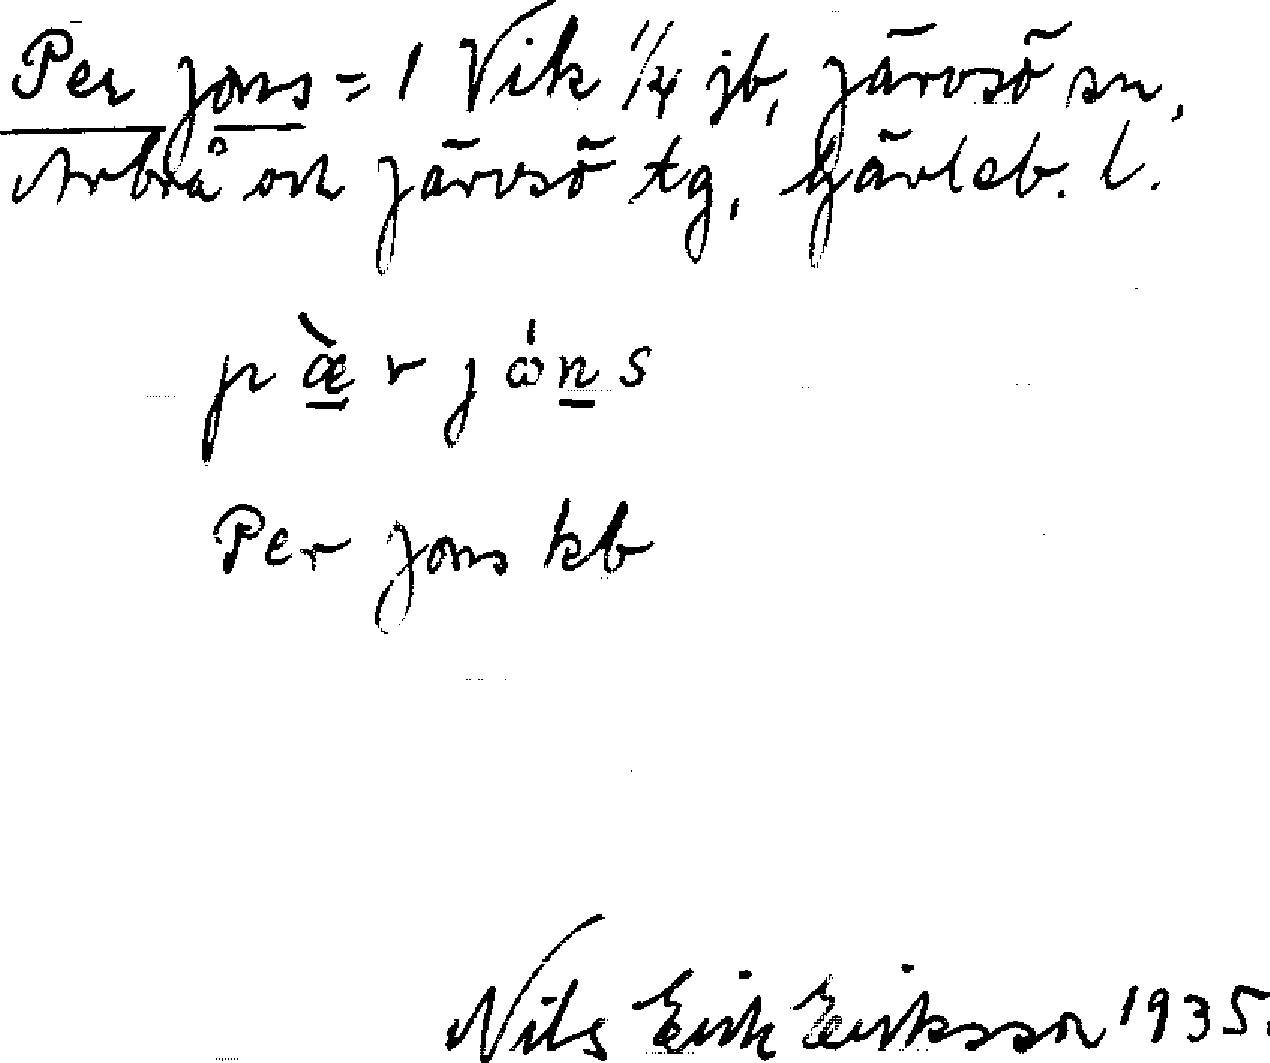 Per Jons = 1 Vik 1/4 jb, Järvsö sn,
Arbrå och Järvsö tg, Gävleb. l.
pæ̀r jώns
Per Jons kb
Nils Erik Eriksson 1935.